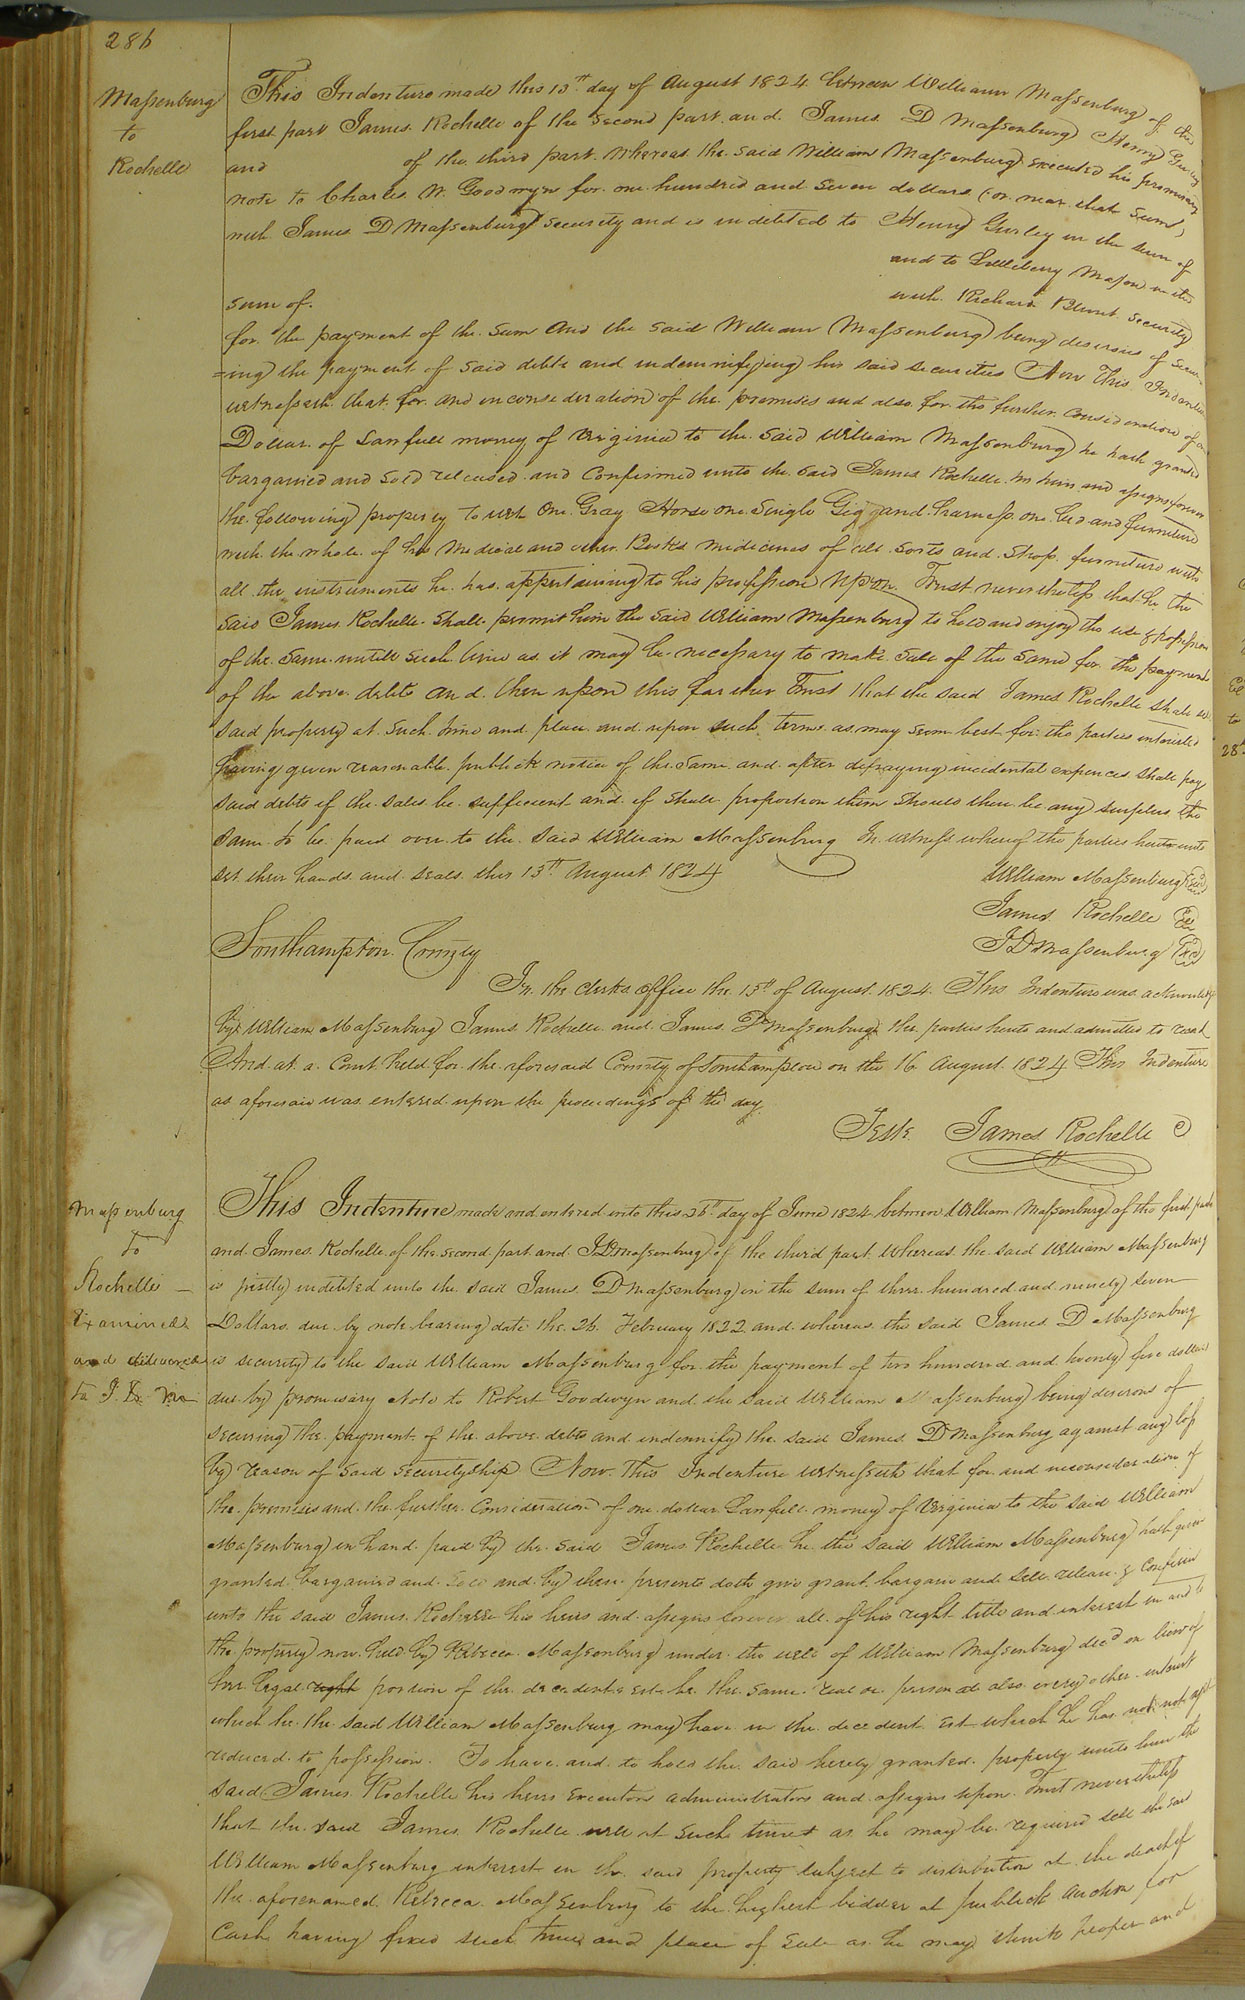 286
Massenburg
to
Rochelle
This Indenture made this 13th day of August 1824 between William Massenburg of the
first part James Rochelle of the second part and James D Massenburg Henry Gurley
and of the third part. Whereas the said William Massenburg executed his promissory
note to Charles W. Goodwyn for one hundred and seven dollars (or near that sum)
with James D Massenburg security and is indebted to Henry Gurley in the sum of
and to Littleberry Mason in the
sum of. with Richard Blunt security
for the payment of the sum And the said William Massenburg being desirous of secur-
=ing the payment of said debts and indemnifying his said securities Now This Indenture
witnesseth that for and in consideration of the premises and also for the further consideration of one
Dollar of Lawfull money of Virginia to the said William Massenburg he hath granted
bargained and sold released and confirmed unto the said James Rochelle his heirs and assigns forever
the following property to wit One Gray Horse one single Gig and harness one bed and furniture
with the whole of his Medical and other Books medicines of all sorts and shop furniture with
all the instruments he has appertaining to his profession Upon Trust nevertheless that he the
said James Rochelle shall permit him the said William Massenburg to hold and enjoy the use & possession
of the same untill such time as it may be necessary to make sale of the same for the payment
of the above debts and then upon this further Trust that the said James Rochelle shall sell
said property at such time and place and upon such terms as may seem best for the parties interested
having given reasonable publick notice of the same and after defraying incidental expences shall pay
said debts if the sales be sufficient and if shall proportion them should there be any surplus the
same to be paid over to the said William Massenburg In witness whereof the parties hereunto
set their hands and seals this 13th August 1824
William Massenburg Seal
James Rochelle Seal
J D Massenburg Seal
Southampton County
In the clerks office the 15th of August 1824. This Indenture was acknowledged
by William Massenburg James Rochelle and James D Massenburg the parties hereto and admitted to record
And at a Court held for the aforesaid County of Southampton on the 16 August 1824 This Indenture
as aforesaid was entered upon the proceedings of the day
Teste James Rochelle C
Massenburg
to
Rochelle —
Examined
and delivered
to J. D. M
This Indenture made and entered into this 26th day of June 1824 between William Massenburg of the first part
and James Rochelle of the second part and J D Massenburg of the third part whereas the said William Massenburg
is justly indebted unto the said James D Massenburg in the sum of three hundred and ninety seven
Dollars due by note bearing date the 26 February 1822 and whereas the said James D Massenburg
is security to the said William Massenburg for the payment of two hundred and twenty five dollars
due by promissary Note to Robert Goodwyn and the said William Massenburg being desirous of
securing the payment of the above debts and indemnify the said James D Massenburg against any loss
by reason of said securityship Now This Indenture witnesseth that for and in consideration of
the premises and the further consideration of one dollar Lawfull money of Virginia to the said William
Massenburg in hand paid by the said James Rochelle he the said William Massenburg hath given
granted bargained and sold and by these presents doth give grant bargain and sell release & confirm
unto the said James Rochelle his heirs and assigns forever all of his right title and interest in and to
the property now held by Rebecca Massenburg under the will of William Massenburg decd on lieu of
her legal right portion of the decedents est be the same real or personal also every other interest
which he the said William Massenburg may have in the decedent est which he has not
reduced to possession. To have and to hold the said hereby granted property unto him the
said James Rochelle his heirs executors administrators and assigns upon Trust nevertheless
that the said James Rochelle will at such times as he may be required sell the said
William Massenburg interest in the said property subject to distribution at the death of
the aforenamed Rebecca Massenburg to the highest bidder at publick auction for
Cash having fixed such time and place of sale as he may think proper and